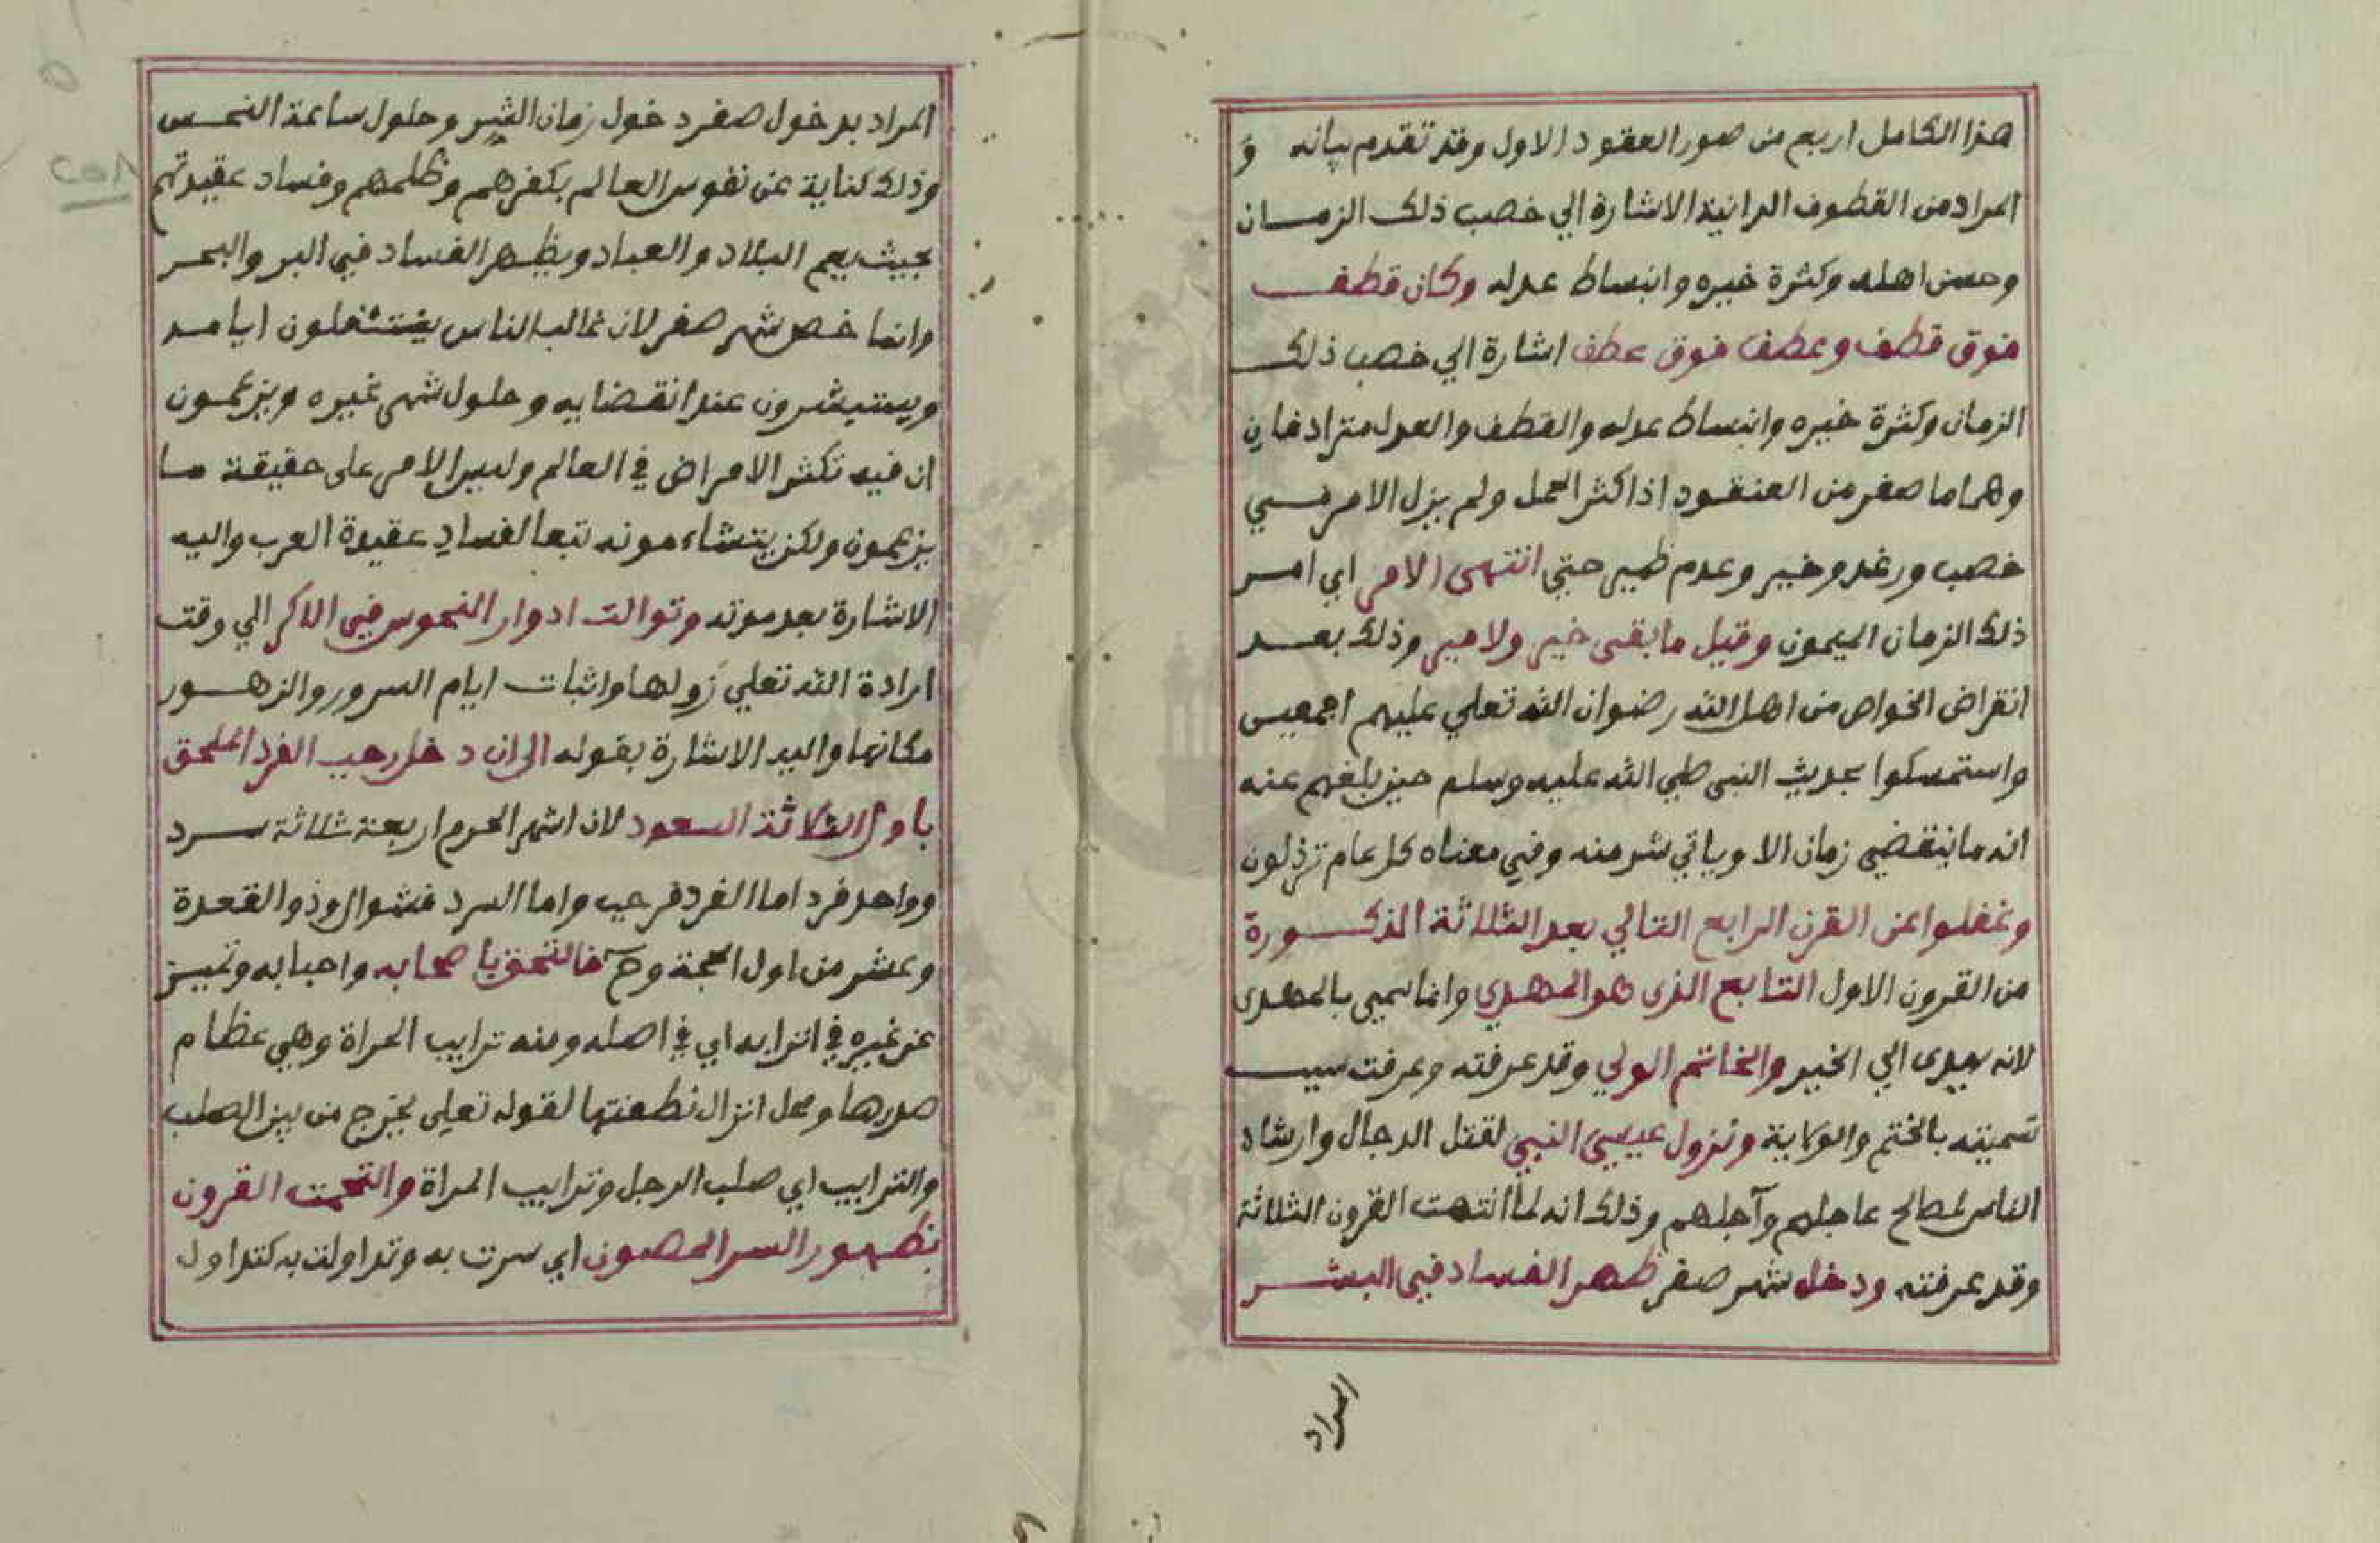 هذا الكامل اربع من صور العقود الاول وقد تقدم بيانه و
المراد من القطوف الدانية الاشارة الي خصب ذلك الزمـــان
وحسن اهله وكثرة خيره وانبساط عدله وكان قطف
فوق قطف وعطف فوق عطف اشارة الي خصب ذلك
الزمان وكثرة خيره وانبساط عدله والقطف والعدل مترادفان
وهما ما صغر من العنقود اذا كثر الحمل ولم يزل الامر فـي
خصب ورغد وخير وعدم ظير حتي انتهى الامر اي امـر
ذلك الزمان الميمون وقيل ما بقى خير ولا مير وذلك بعـد
انقراض الخواص من اهل الله رضوان الله تعلي عليهم اجمعين
واستمسكوا بحديث النبى صلي الله عليه وسلم حين بلغهم عنه
انه ما ينقضي زمان الا وياتي شر منه وفي معناه كل عام ترذلون
وغفلوا عن القرن الرابع التالي بعد الثلاثة المذكـورة
من القرون الاول التابع الذى هو المهدي وانما سمي بالمهدى
لانه يهدى الي الخير والخاتم الولي وقد عرفته وعرفت سبب
تسميته بالختم والولاية ونزول عيسى النبي لقتل الدجال وارشاد
الناس لمصالح عاجلهم وآجلهم وذلك انه لما انتهت القرون الثلاثة
وقد عرفته ودخل شهر صفر ظهر الفساد في البشـر
المراد
المراد بدخول صفر دخول زمان الشر وحلول ساعة النحـس
وذلك كناية عن نفوس العالم بكفرهم وظلمهم وفساد عقيدتهم
بحيث يعم البلاد والعباد ويظهر الفساد في البر والبحـر
وانما خص شهر صفر لان غالب الناس يستثقلون ايامـه
ويستبشرون عند انقضايه وحلول شهر غيره ويزعمـون
ان فيه تكثر الامراض في العالم وليس الامر على حقيقة مـا
يزعمون ولكن يتشاءمونه تبعا لفساد عقيدة العرب واليه
الاشارة بعد موته وتوالت ادوار النحوس في الاكر الي وقت
ارادة الله تعلي زولها واثبات ايام السرور والزهـور
مكانها واليه الاشارة بقوله الى ان دخل رجب الفرد الملحق
باول الثلاثة السعود لان اشهر الحرم اربعة ثلاثة سـرد
وواحد فرد اما الفرد فرجب واما السرد فشوال وذو القعدة
وعشر من اول الحجة وح فالتحق باصحابه واحبابه وتميـز
عن غيره في اترابه اي في اصله ومنه ترايب المراة وهي عظام
صدرها ومحل انزال نطفتها لقوله تعلى يخرج من بين الصلب
والترايب اي صلب الرجل وترايب المراة والتحمت القرون
بظهور السر المصون اي سرت به وتداولت به كتداول